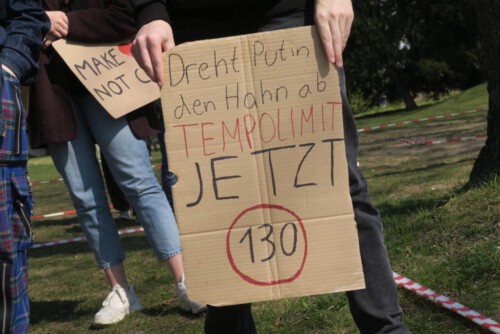 MAKE
NOT
Dreht Putin
den Hahn ab
TEMPOLIMIT
JETZT
130